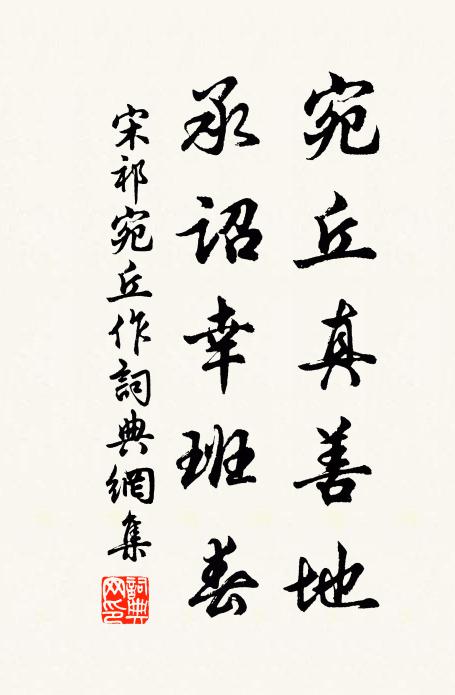 宛丘真善地
承詔幸班春
宋祁宛丘作詞典網集
詞典網印